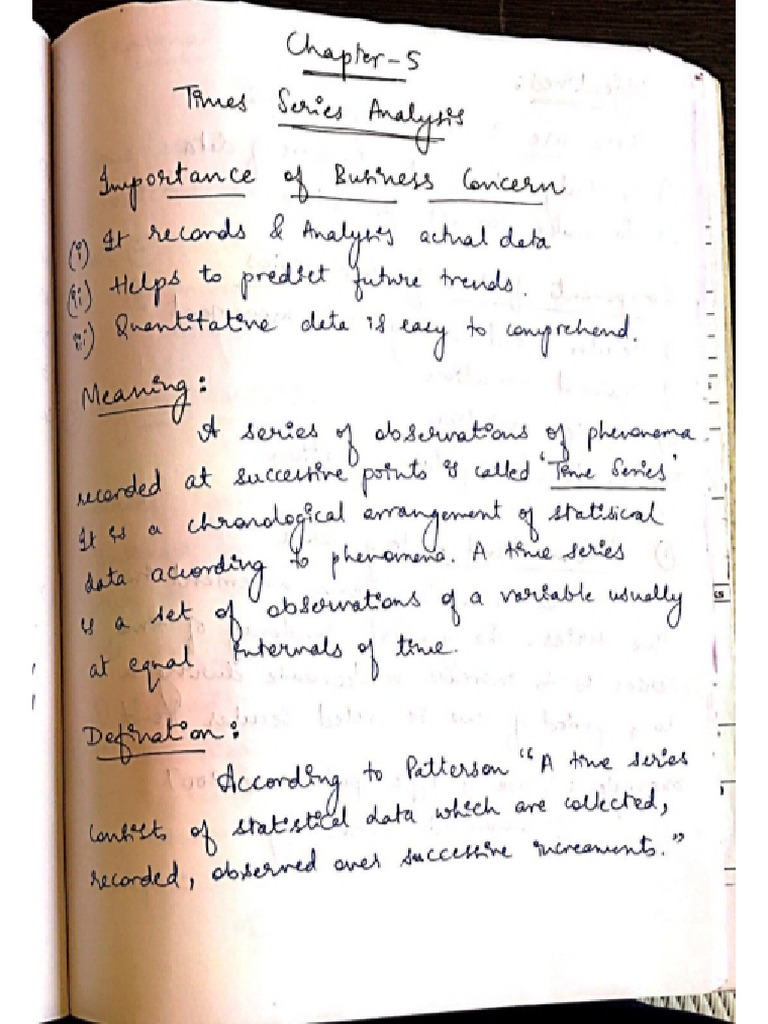 Chapter-5
Times Series Analysis
Importance of Business Concern
(i) It records & Analysis actual data
(ii) Helps to predict future trends.
iii) Quantitative data is easy to comprehend.
Meaning:
A series of observations of phenonema
recorded at successive points is called 'Time Series'
It is a chronological arrangement of statisical
data according to phenomena. A time series
is a set of observations of a variable usually
at equal Internals of time.
Defination:
According to Patterson "A time series
consists of statistical data which are collected,
recorded, observed over successive increaments."